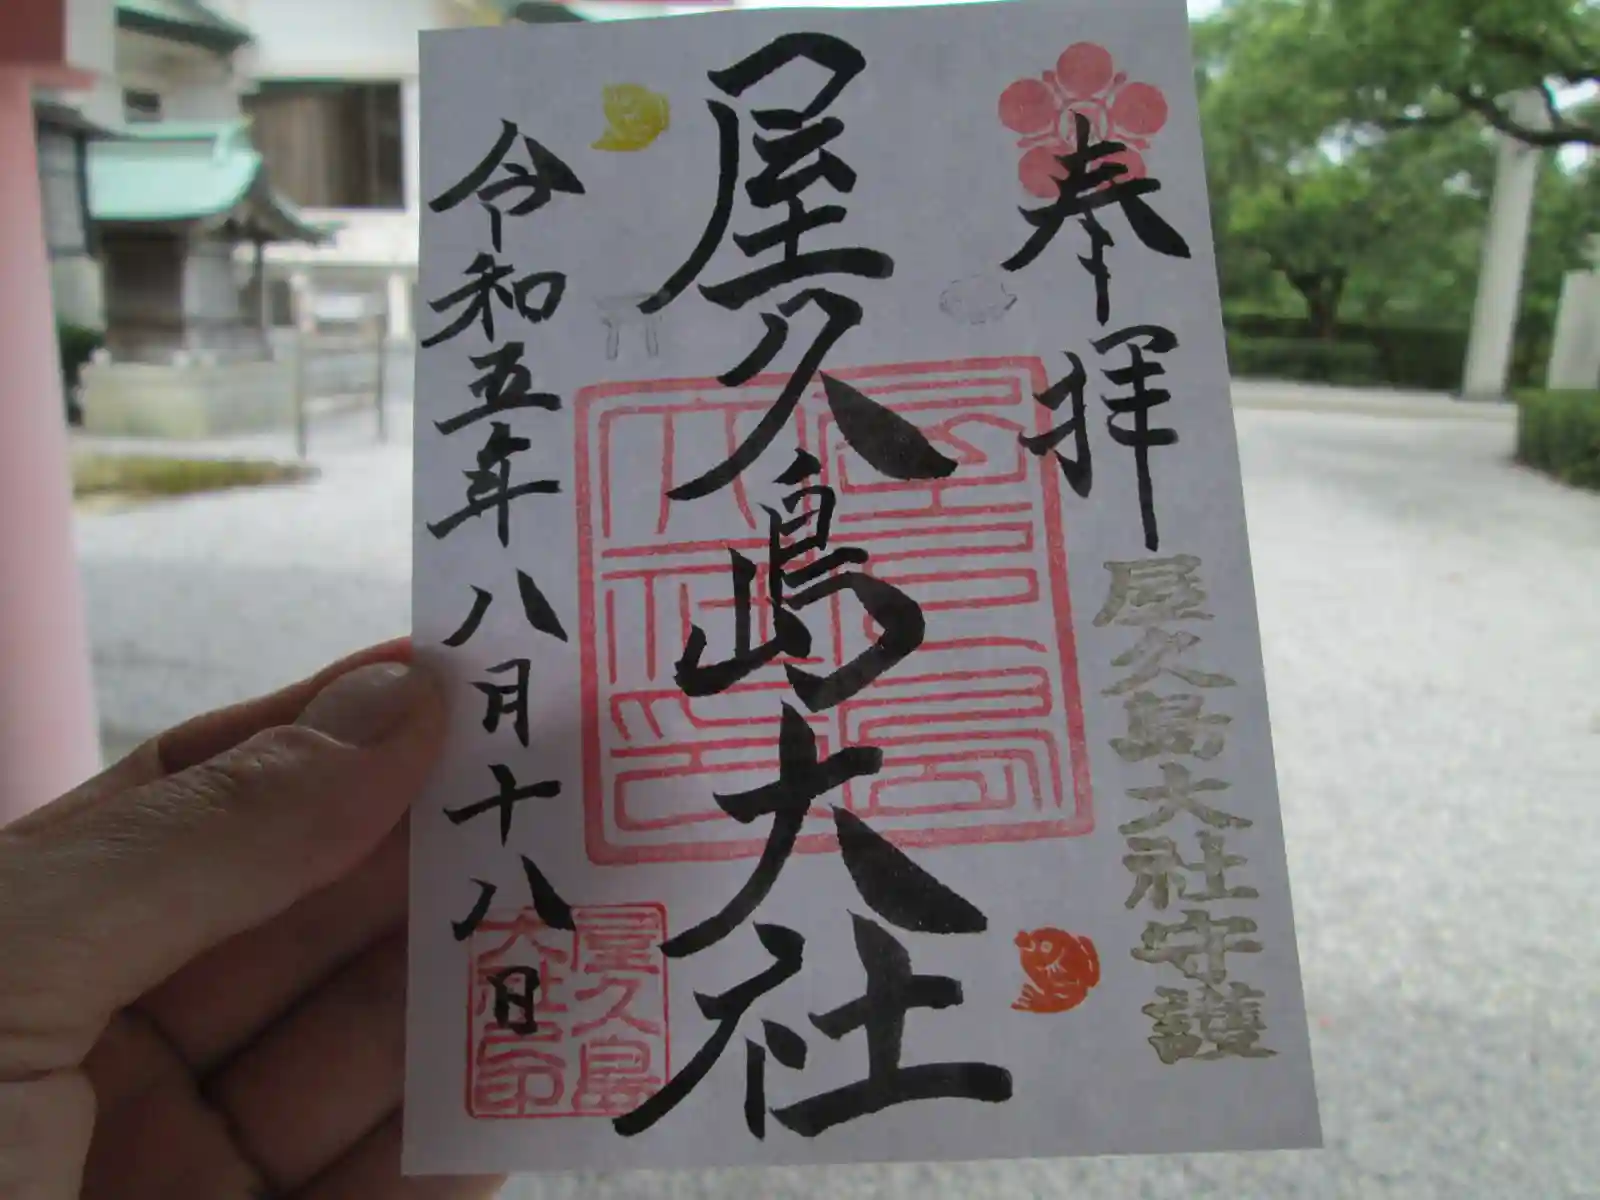 奉拝
屋久島大社守護
屋久島大社
屋久島大社印
令和五年八月十八日
屋久島
大社印